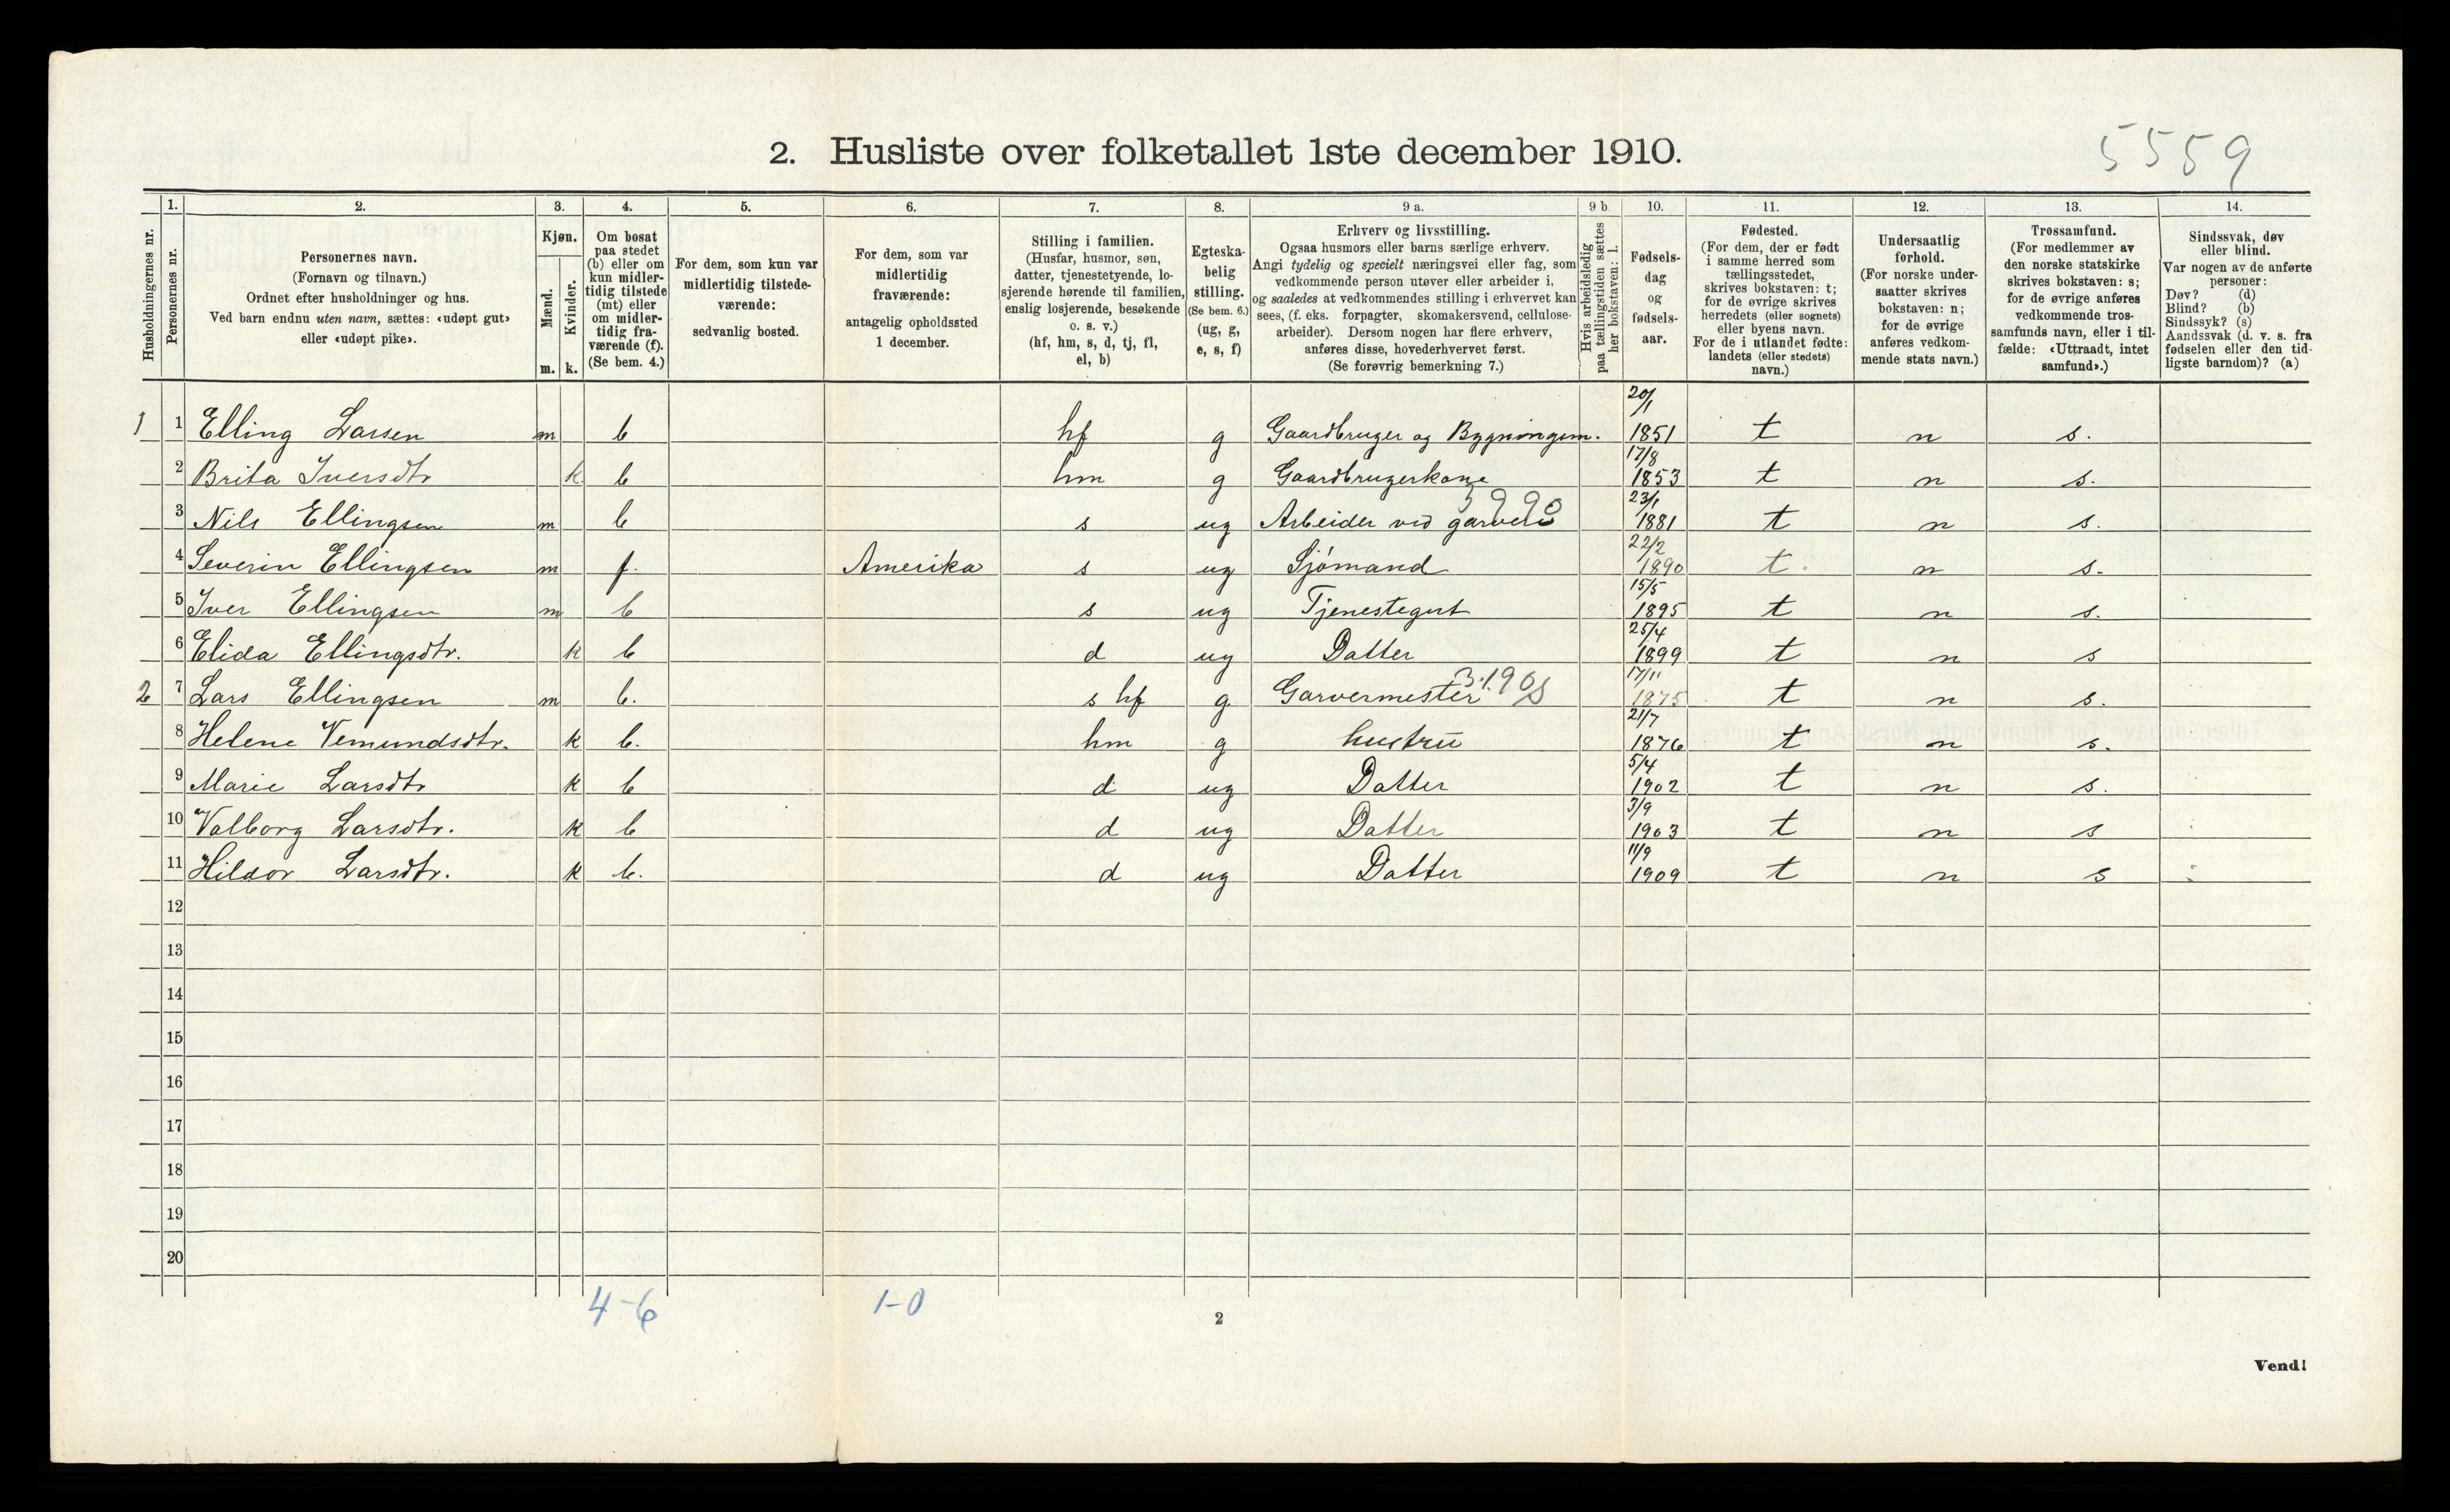 5559
2. Husliste over folketallet 1ste december 1910.
Husholdningernes nr.
1. Personernes nr.
2. Personernes navn. (Fornavn og tilnavn.) Ordnet efter husholdninger og hus. Ved barn endnu uten navn, sættes: «udøpt gut» eller «udøpt pike».
3. Kjøn. Mænd. m. Kvinder. k.
4. Om bosat paa stedet (b) eller om kun midlertidig tilstede (mt) eller om midlertidig fraværende (f). (Se bem. 4.)
5. For dem, som kun var midlertidig tilstedeværende: sedvanlig bosted.
6. For dem, som var midlertidig fraværende: antagelig opholdssted 1 december.
7. Stilling i familien. (Husfar, husmor, søn, datter, tjenestetyende, losjerende hørende til familien, enslig losjerende, besøkende o. s. v.) (hf, hm, s, d, tj, fl, el, b)
8. Egteskabelig stilling. (Se bem. 6.) (ug, g, e, s, f)
9 a. Erhverv og livsstilling. Ogsaa husmors eller barns særlige erhverv. Angi tydelig og specielt næringsvei eller fag, som vedkommende person utøver eller arbeider i, og saaledes at vedkommendes stilling i erhvervet kan sees, (f. eks. forpagter, skomakersvend, cellulosearbeider). Dersom nogen har flere erhverv, anføres disse, hovederhvervet først. (Se forøvrig bemerkning 7.)
9 b Hvis arbeidsledig paa tællingstiden sættes her bokstaven: l.
10. Fødselsdag og fødselsaar.
11. Fødested. (For dem, der er født i samme herred som tællingsstedet, skrives bokstaven: t; for de øvrige skrives herredets (eller sognets) eller byens navn. For de i utlandet fødte: landets (eller stedets) navn.)
12. Undersaatlig forhold. (For norske undersaatter skrives bokstaven: n; for de øvrige anføres vedkommende stats navn.)
13. Trossamfund. (For medlemmer av den norske statskirke skrives bokstaven: s; for de øvrige anføres vedkommende trossamfunds navn, eller i tilfælde: «Uttraadt, intet samfund».)
14. Sindssvak, døv eller blind. Var nogen av de anførte personer: Døv? (d) Blind? (b) Sindssyk? (s) Aandssvak (d. v. s. fra fødselen eller den tidligste barndom)? (a)
1 1 Elling Larsen m b hf g Gaardbruger og Bygningsm. 20/1 1851 t n s.
2 Brita Iversdtr k b hm g Gaardbrugerkone 17/8 1853 t n s.
3 Nils Ellingsen m b s ug Arbeider ved garveri 23/1 1881 t n s.
4 Severin Ellingsen m f. Amerika s ug Sjömand 22/2 1890 t. n s.
5 Iver Ellingsen m b s ug Tjenestegut 15/5 1895 t n s.
6 Elida Ellingsdtr. k b d ug Datter 25/4 1899 t n s
2 7 Lars Ellingsen m b. s hf g Garvermester 17/11 1875 t n s.
8 Helene Vemundsdtr. k b. hm g hustru 21/7 1876 t n s.
9 Marie Larsdtr k b d ug Datter 5/4 1902 t n s.
10 Valborg Larsdtr. k b d ug Datter 3/9 1903 t n s
11 Hildor Larsdtr. k b. d ug Datter 11/9 1909 t n s
12
13
14
15
16
17
18
19
20
4-6 1-0
2
Vend!